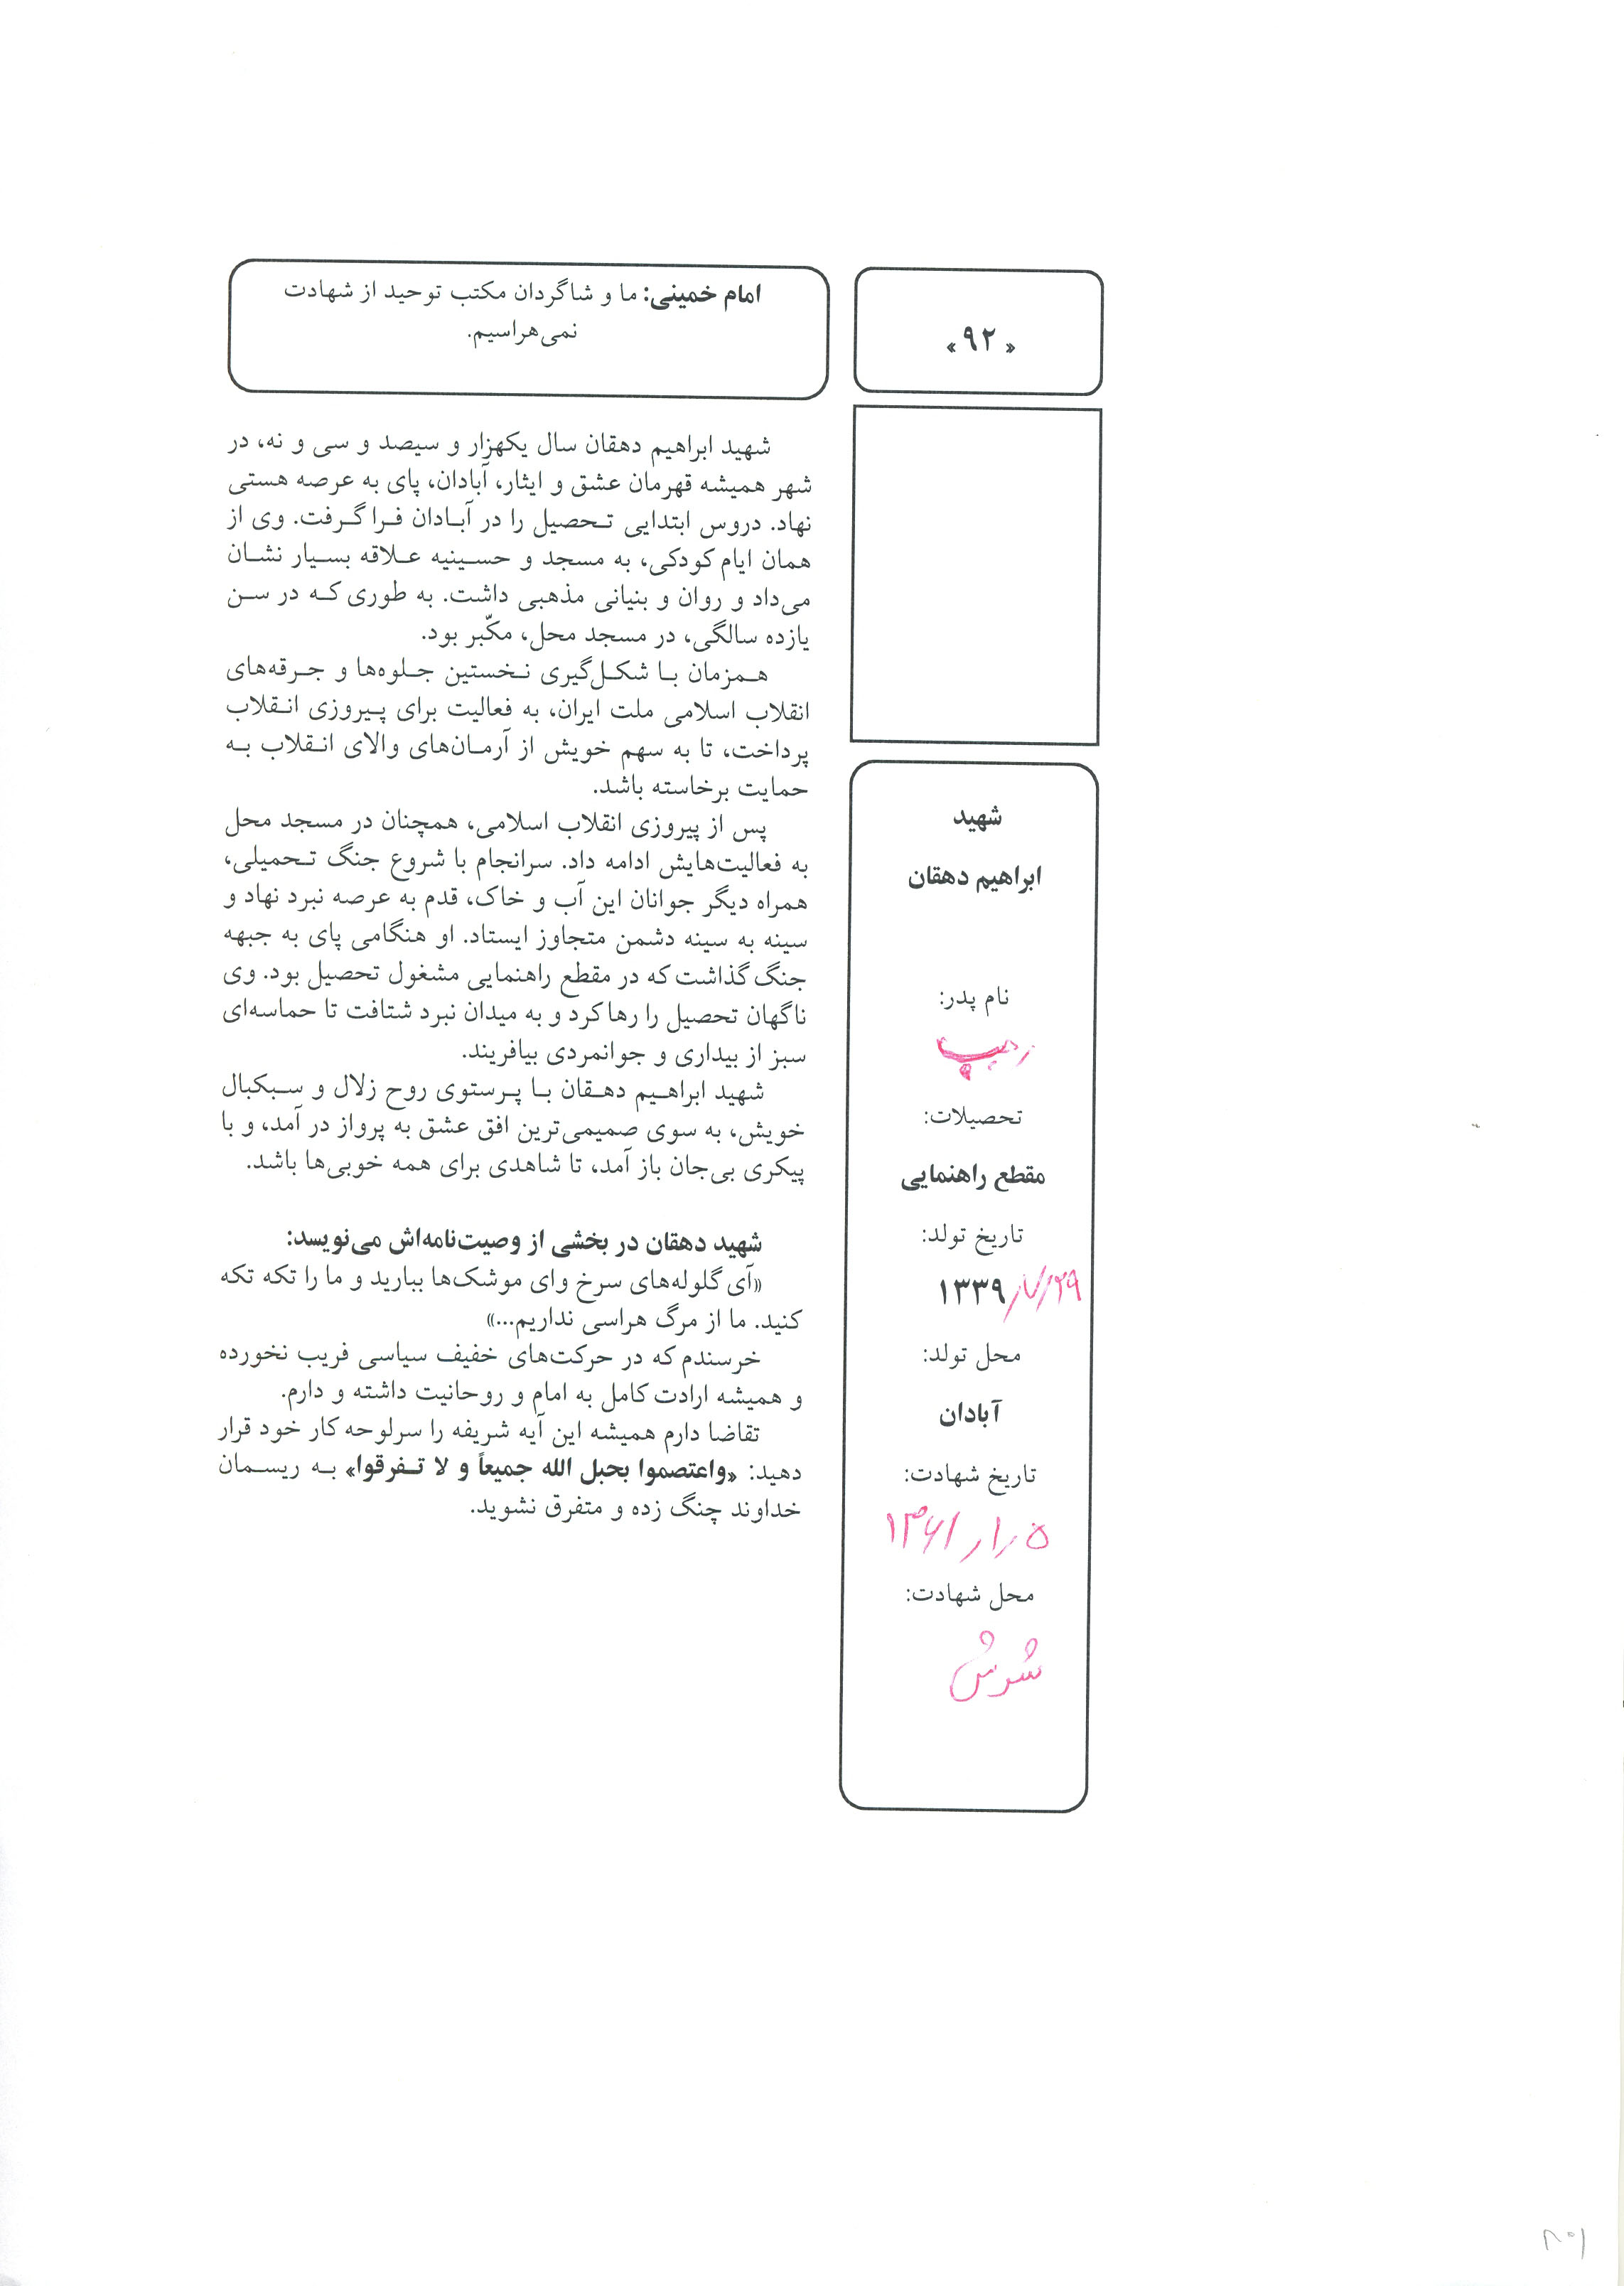 «۹۲»
امام خمینی: ما و شاگردان مکتب توحید از شهادت
نمی‌هراسیم.
شهید
ابراهیم دهقان
نام پدر:
تحصیلات:
مقطع راهنمایی
تاریخ تولد:
۱۳۳۹/۷/۲۹
محل تولد:
آبادان
تاریخ شهادت:
۱۳۶۱/۱/۵
محل شهادت:
شوش
شهید ابراهیم دهقان سال یکهزار و سیصد و سی و نه، در
شهر همیشه قهرمان عشق و ایثار، آبادان، پای به عرصه هستی
نهاد. دروس ابتدایی تحصیل را در آبادان فرا گرفت. وی از
همان ایام کودکی، به مسجد و حسینیه علاقه بسیار نشان
می‌داد و روان و بنیانی مذهبی داشت. به طوری که در سن
یازده سالگی، در مسجد محل، مکّبر بود.
همزمان با شکل‌گیری نخستین جلوه‌ها و جرقه‌های
انقلاب اسلامی ملت ایران، به فعالیت برای پیروزی انقلاب
پرداخت، تا به سهم خویش از آرمان‌های والای انقلاب به
حمایت برخاسته باشد.
پس از پیروزی انقلاب اسلامی، همچنان در مسجد محل
به فعالیت‌هایش ادامه داد. سرانجام با شروع جنگ تحمیلی،
همراه دیگر جوانان این آب و خاک، قدم به عرصه نبرد نهاد و
سینه به سینه دشمن متجاوز ایستاد. او هنگامی پای به جبهه
جنگ گذاشت که در مقطع راهنمایی مشغول تحصیل بود. وی
ناگهان تحصیل را رها کرد و به میدان نبرد شتافت تا حماسه‌ای
سبز از بیداری و جوانمردی بیافریند.
شهید ابراهیم دهقان با پرستوی روح زلال و سبکبال
خویش، به سوی صمیمی‌ترین افق عشق به پرواز در آمد، و با
پیکری بی‌جان باز آمد، تا شاهدی برای همه خوبی‌ها باشد.
شهید دهقان در بخشی از وصیت‌نامه‌اش می‌نویسد:
«آی گلوله‌های سرخ وای موشک‌ها ببارید و ما را تکه تکه
کنید. ما از مرگ هراسی نداریم...»
خرسندم که در حرکت‌های خفیف سیاسی فریب نخورده
و همیشه ارادت کامل به امام و روحانیت داشته و دارم.
تقاضا دارم همیشه این آیه شریفه را سرلوحه کار خود قرار
دهید: «واعتصموا بحبل الله جمیعاً و لا تفرقوا» به ریسمان
خداوند چنگ زده و متفرق نشوید.